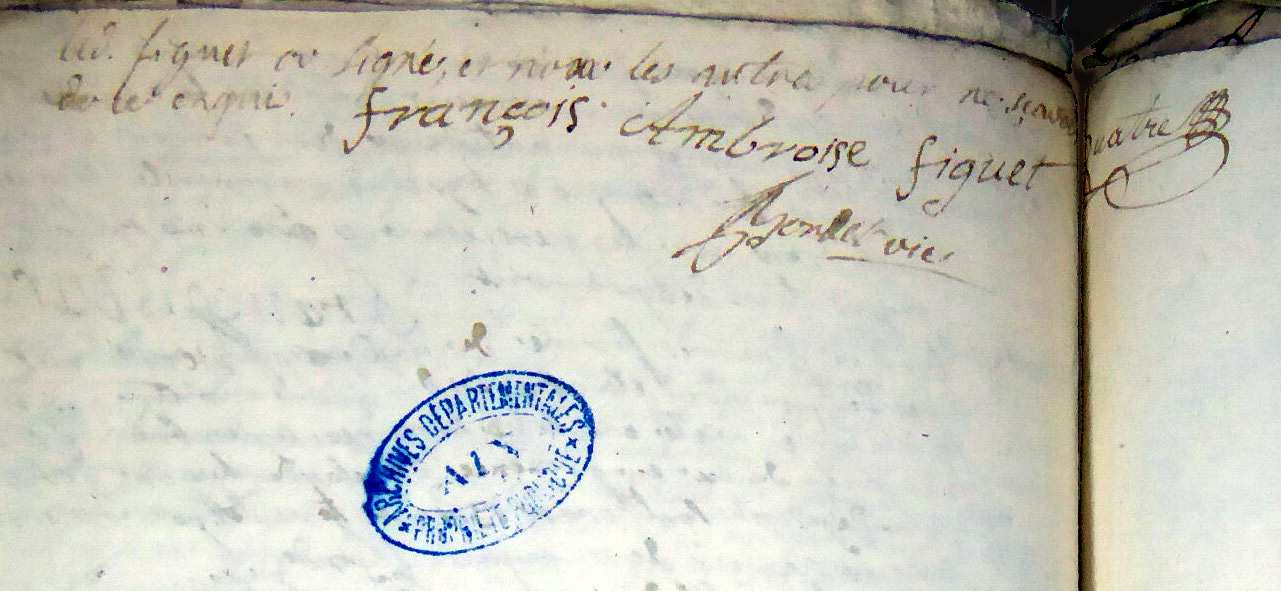 led. figuet a signé, et non les autres pour ne sçavoir
de ce enquis. françois Ambroise figuet
quatre
ARCHIVES DÉPARTEMENTALES
AIN
PROPRIÉTÉ PUBLIQUE